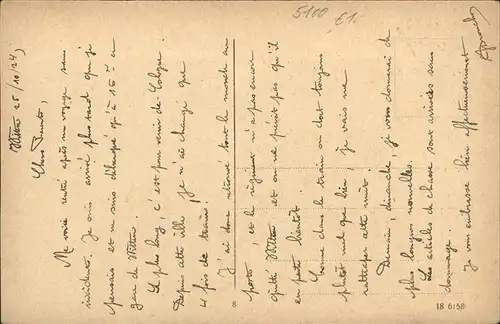 Witten 25/10/24,
Chers Parents,
Me voici rentré après un voyage sans
incidents. Je suis arrivé plus tard que je
pensais et ne suis débarqué qu'à 16h en
gare de Witten.
Le plus long, c'est pour venir de Cologne.
Depuis cette ville, je n'ai changé que
4 fois de trains!
J'ai donc retrouvé tout le monde au
poste, et le régiment n'a pas encore
quitté Witten et on ne prévoit pas qu'il
en parte bientôt.
Comme dans le train on dort toujours
plutôt mal que bien, je vais me
rattraper cette nuit.
Demain, dimanche, je vous donnerai de
plus longues nouvelles.
Les articles de chasse sont arrivés sans
dommage.
Je vous embrasse bien affectueusement
5-100
£1.
8
18 6158